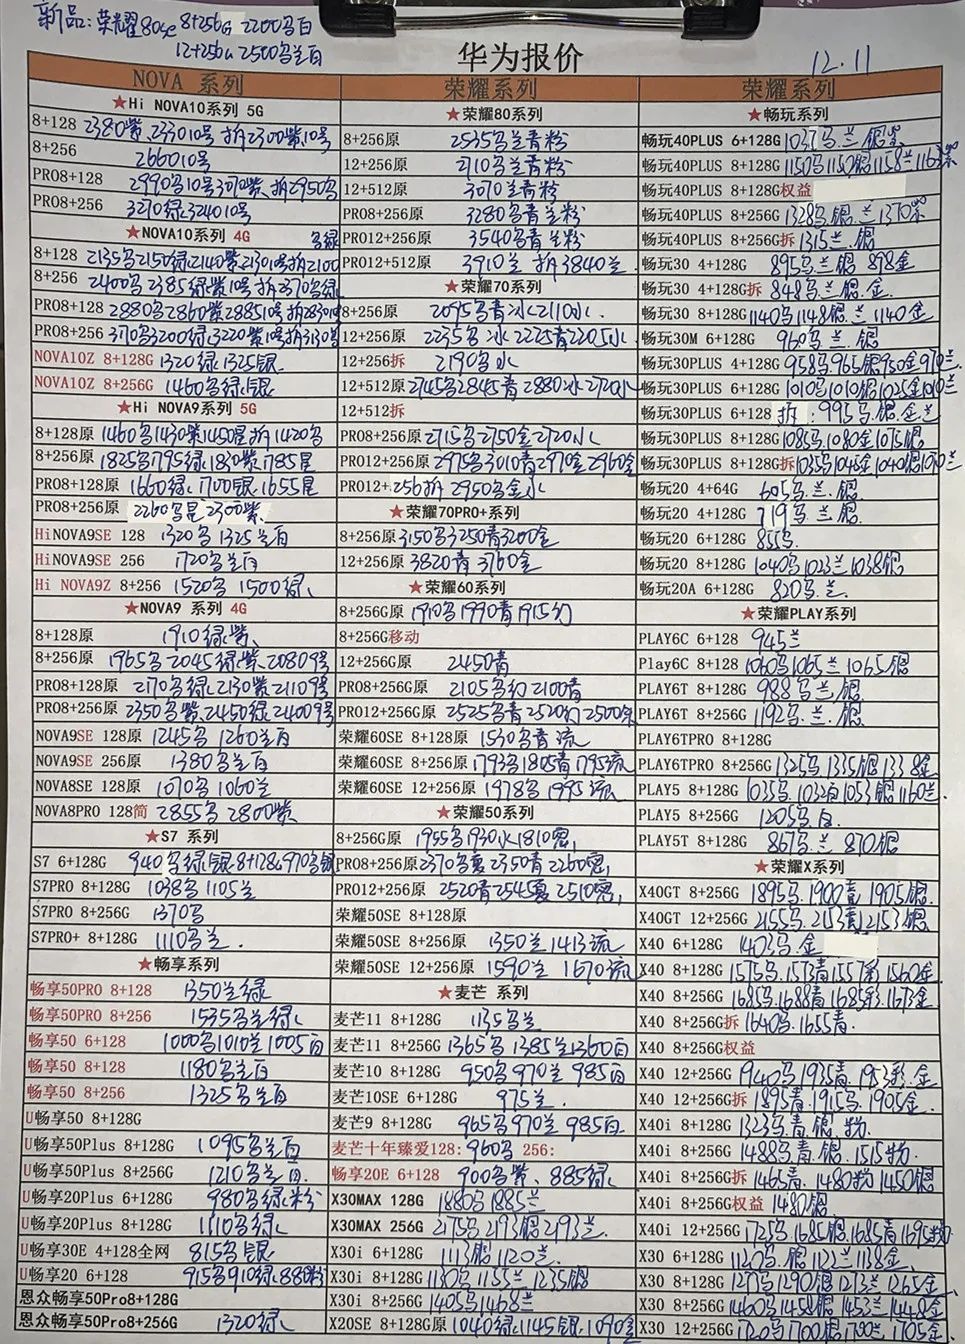 新品:荣耀80se 8+256G 2200乌白
12+256G 2500乌兰白
华为报价
12.11
NOVA 系列
★Hi NOVA10系列 5G
8+128 2380紫、2330 10号 拆2300紫、10号
8+256 2660 10号
PRO8+128 2990乌10号3070紫、拆2950乌
PRO8+256 3270绿3240 10号
★NOVA10系列 4G
8+128 2135乌2150绿2140紫2130 10号拆2100
8+256 2400乌2385绿紫10号 拆2370乌绿
PRO8+128 2880乌2860紫2885 10号
PRO8+256 3170乌3200绿3220紫10号拆3130号
NOVA10Z 8+128G 1320绿1325银
NOVA10Z 8+256G 1460乌绿、银
★Hi NOVA9系列 5G
8+128原 1460乌1430紫1450星拆1420乌
8+256原 1825乌1795绿1830紫1785星
PRO8+128原 1660绿、1700银1655星
PRO8+256原 2260乌星2300紫、
HiNOVA9SE 128 1320乌1325兰白
HiNOVA9SE 256 1720乌兰白
Hi NOVA9Z 8+256 1520乌1500绿、
★NOVA9 系列 4G
8+128原 1910绿紫、
8+256原 1965乌2045绿紫、2080 9号
PRO8+128原 2170乌绿2130紫2110 9号
PRO8+256原 2350乌紫、2450绿2440 9号
NOVA9SE 128原 1245乌 1260兰白
NOVA9SE 256原 1380乌兰白
NOVA8SE 128原 1070乌 1060兰
NOVA8PRO 128简 2855乌 2800紫
★S7 系列
S7 6+128G 940乌绿银8+128G970乌银
S7PRO 8+128G 1038乌 1105兰
S7PRO 8+256G 1370乌
S7PRO+ 8+128G 1110乌兰.
★畅享系列
畅享50PRO 8+128 1350兰绿
畅享50PRO 8+256 1535乌兰绿
畅享50 6+128 1000乌1010兰1005白
畅享50 8+128 1180乌兰白
畅享50 8+256 1325乌兰白
U畅享50 8+128G
U畅享50Plus 8+128G 1095乌兰白
U畅享50Plus 8+256G 1210乌兰白
U畅享20Plus 6+128G 980乌绿粉
U畅享20Plus 8+128G 1110乌绿
U畅享30E 4+128全网 815乌银
U畅享20 6+128 915乌910绿880粉
恩众畅享50Pro8+128G
恩众畅享50Pro8+256G 1320绿
荣耀系列
★荣耀80系列
8+256原 2535乌兰青粉
12+256原 2710乌兰青粉
12+512原 3070兰青粉
PRO8+256原 3280乌青兰粉
PRO12+256原 3540乌青兰粉
PRO12+512原 3910兰 拆3840兰
★荣耀70系列
8+256原 2095乌青冰2110冰
12+256原 2235乌冰2225青2205冰
12+256拆 2190乌冰
12+512原 2745乌2845青2880冰2720冰
12+512拆
PRO8+256原 2715乌2750金2720冰
PRO12+256原 2975乌3010青2970金2960金
PRO12+256拆 2950乌金冰
★荣耀70PRO+系列
8+256原 3150乌3250青3200金
12+256原 3820青3760金
★荣耀60系列
8+256G原 1910乌1990青1915幻
8+256G移动
12+256G原 2450青
PRO8+256G原 2105乌幻2100青
PRO12+256G原 2525乌青2520幻2500
荣耀60SE 8+128原 1530乌青流
荣耀60SE 8+256原 1793乌1805青1795流
荣耀60SE 12+256原 1978乌 1995流
★荣耀50系列
8+256G原 1955乌1930冰1810密,
PRO8+256原 2370乌夏2350青2260密,
PRO12+256原 2520青2545夏2510密,
荣耀50SE 8+128原
荣耀50SE 8+256原 1350兰1413流
荣耀50SE 12+256原 1590兰 1670流
★麦芒 系列
麦芒11 8+128G 1135乌兰
麦芒11 8+256G 1365乌1385兰1360白
麦芒10 8+128G 950乌970兰985白
麦芒10SE 6+128G 975兰.
麦芒9 8+128G 965乌970兰985白
麦芒十年臻爱128:960乌 256:
畅享20E 6+128 900乌紫、885绿
X30MAX 128G 1880乌1885兰
X30MAX 256G 2175乌2193银2193兰
X30i 6+128G 1113银1120兰
X30i 8+128G 1130乌1155兰1235银
X30i 8+256G 1405乌1468兰
X20SE 8+128G原 1040绿1145银1090
荣耀系列
★畅玩系列
畅玩40PLUS 6+128G 乌.兰.银
畅玩40PLUS 8+128G 1150乌1150银1158兰
畅玩40PLUS 8+128G权益
畅玩40PLUS 8+256G 1328乌.银.兰1370紫
畅玩40PLUS 8+256G拆 1315兰.银
畅玩30 4+128G 895乌兰银 898金
畅玩30 4+128G拆 848乌兰.银.金
畅玩30 8+128G 1140乌1148银.兰1140金
畅玩30M 6+128G 960乌兰.银
畅玩30PLUS 4+128G 958乌965银950金970兰
畅玩30PLUS 6+128G 1010乌1010银1025金
畅玩30PLUS 6+128 拆:995乌.银.金兰
畅玩30PLUS 8+128G 1085乌1080金1075银
畅玩30PLUS 8+128G拆 1035乌1045金1040银
畅玩20 4+64G 605乌.兰.银
畅玩20 4+128G 719乌兰银
畅玩20 6+128G 855乌
畅玩20 8+128G 1040乌1023兰1038银
畅玩20A 6+128G 820乌.兰.
★荣耀PLAY系列
PLAY6C 6+128 945兰
Play6C 8+128 1060乌1065兰1065银
PLAY6T 8+128G 988乌兰.银
PLAY6T 8+256G 1192乌.兰.银
PLAY6TPRO 8+128G
PLAY6TPRO 8+256G 1325乌1335银1338金
PLAY5 8+128G 1035乌1032白1053银1160兰.
PLAY5 8+256G 1205乌白.
PLAY5T 8+128G 867乌兰870银
★荣耀X系列
X40GT 8+256G 1895乌1900青1905银
X40GT 12+256G 2155乌.2153青2153银
X40 6+128G 1403乌.金
X40 8+128G 1575乌.1573青1557彩1560金
X40 8+256G 1685乌1688青1685彩1673金
X40 8+256G拆 1640乌.1655青.
X40 8+256G权益
X40 12+256G 1940乌1935青.1953彩.金
X40 12+256G拆 1895青.1915乌.1905金.
X40i 8+128G 1323乌.青.银.粉.
X40i 8+256G 1488乌青.银.1515粉.
X40i 8+256G拆 1465青.1480粉1450银
X40i 8+256G权益 1480银
X40i 12+256G 1725乌1685银1685青1695粉
X30 6+128G 1120乌.银1122兰1138金.
X30 8+128G 1271乌1290银1213兰1265金
X30 8+256G 1460乌1458银1453兰1448金
X30 12+256G 1720乌1700银1700兰1705金